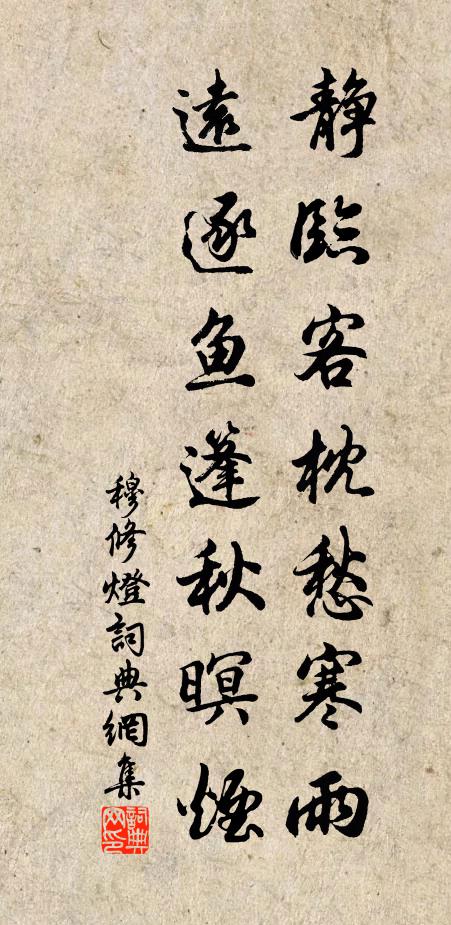 靜臨客枕愁寒雨
遠逐魚篷秋暝煙
穆修燈詞典網集
詞典網印